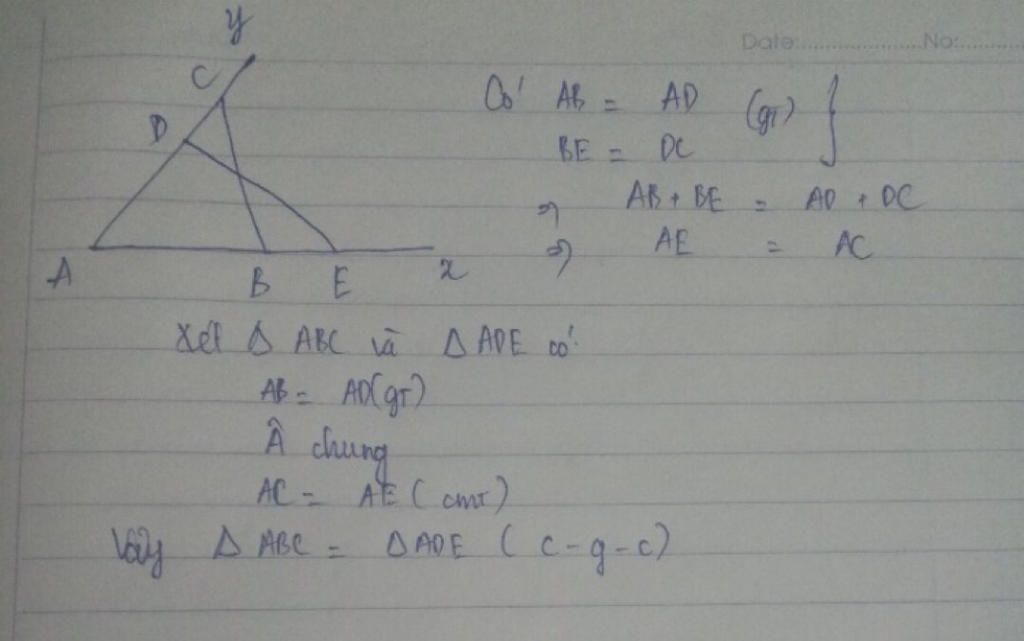 y
Date:..................No:............
C
D
A
B E x
Có AB = AD (gt) }
BE = DC
⇒ AB + BE = AD + DC
⇒ AE = AC
Xét Δ ABC và Δ ADE có:
AB = AD (gT)
Â chung
AC = AE ( cmt )
Vậy Δ ABC = Δ ADE ( c - g - c )